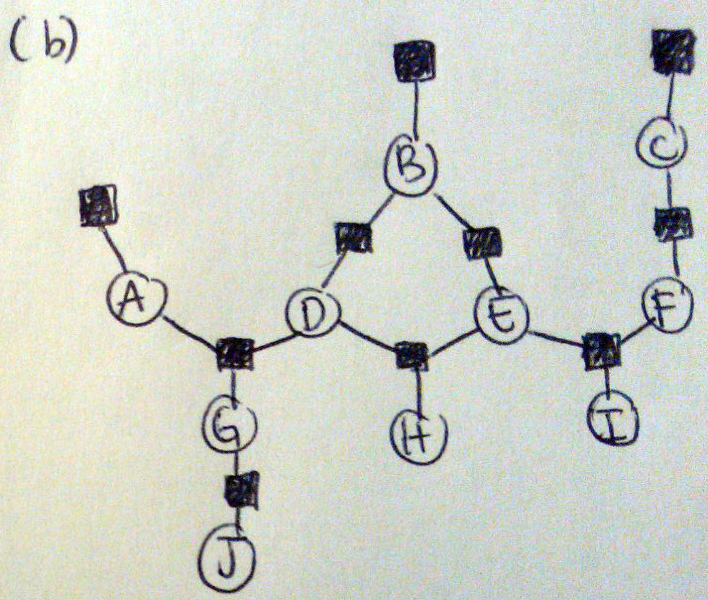 (b)
B
C
A
D
E
F
G
H
I
J